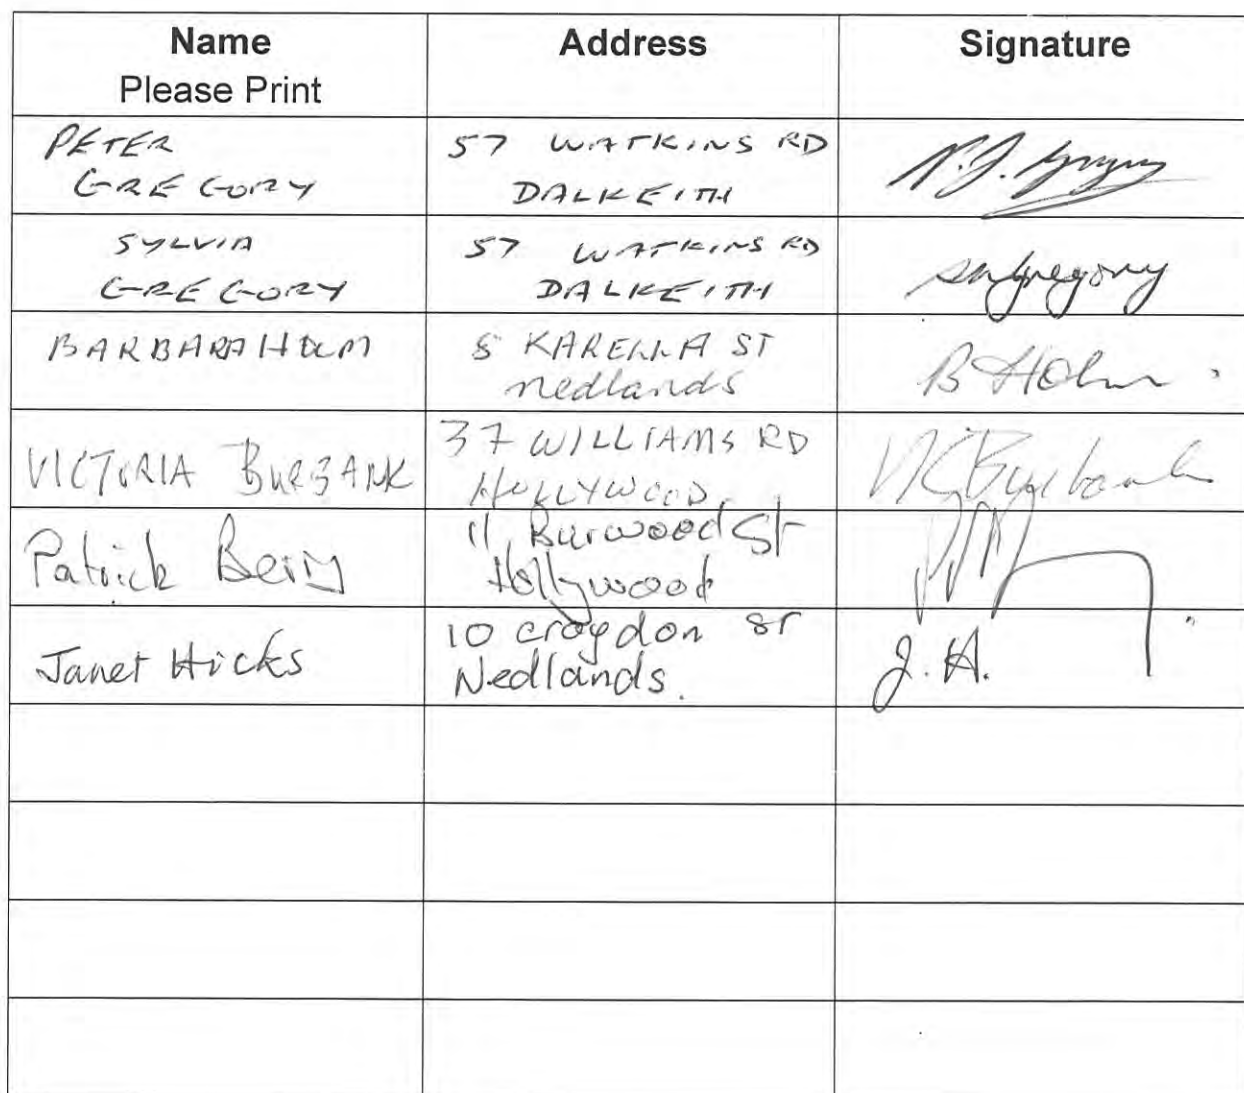 Name Address Signature
Please Print
PETER
GREGORY
57 WATKINS RD
DALKEITH
P.J. Gregory
SYLVIA
GREGORY
57 WATKINS RD
DALKEITH
snGregory
BARBARA HOLM
KARELLA ST
nedlands
B Holm
VICTORIA BURBANK
37 WILLIAMS RD
HOLLYWOOD
VKBurbank
Patrick Berry
11 Burwood St
Hollywood
Janet Hicks
10 croydon ST
Nedlands.
J. H.